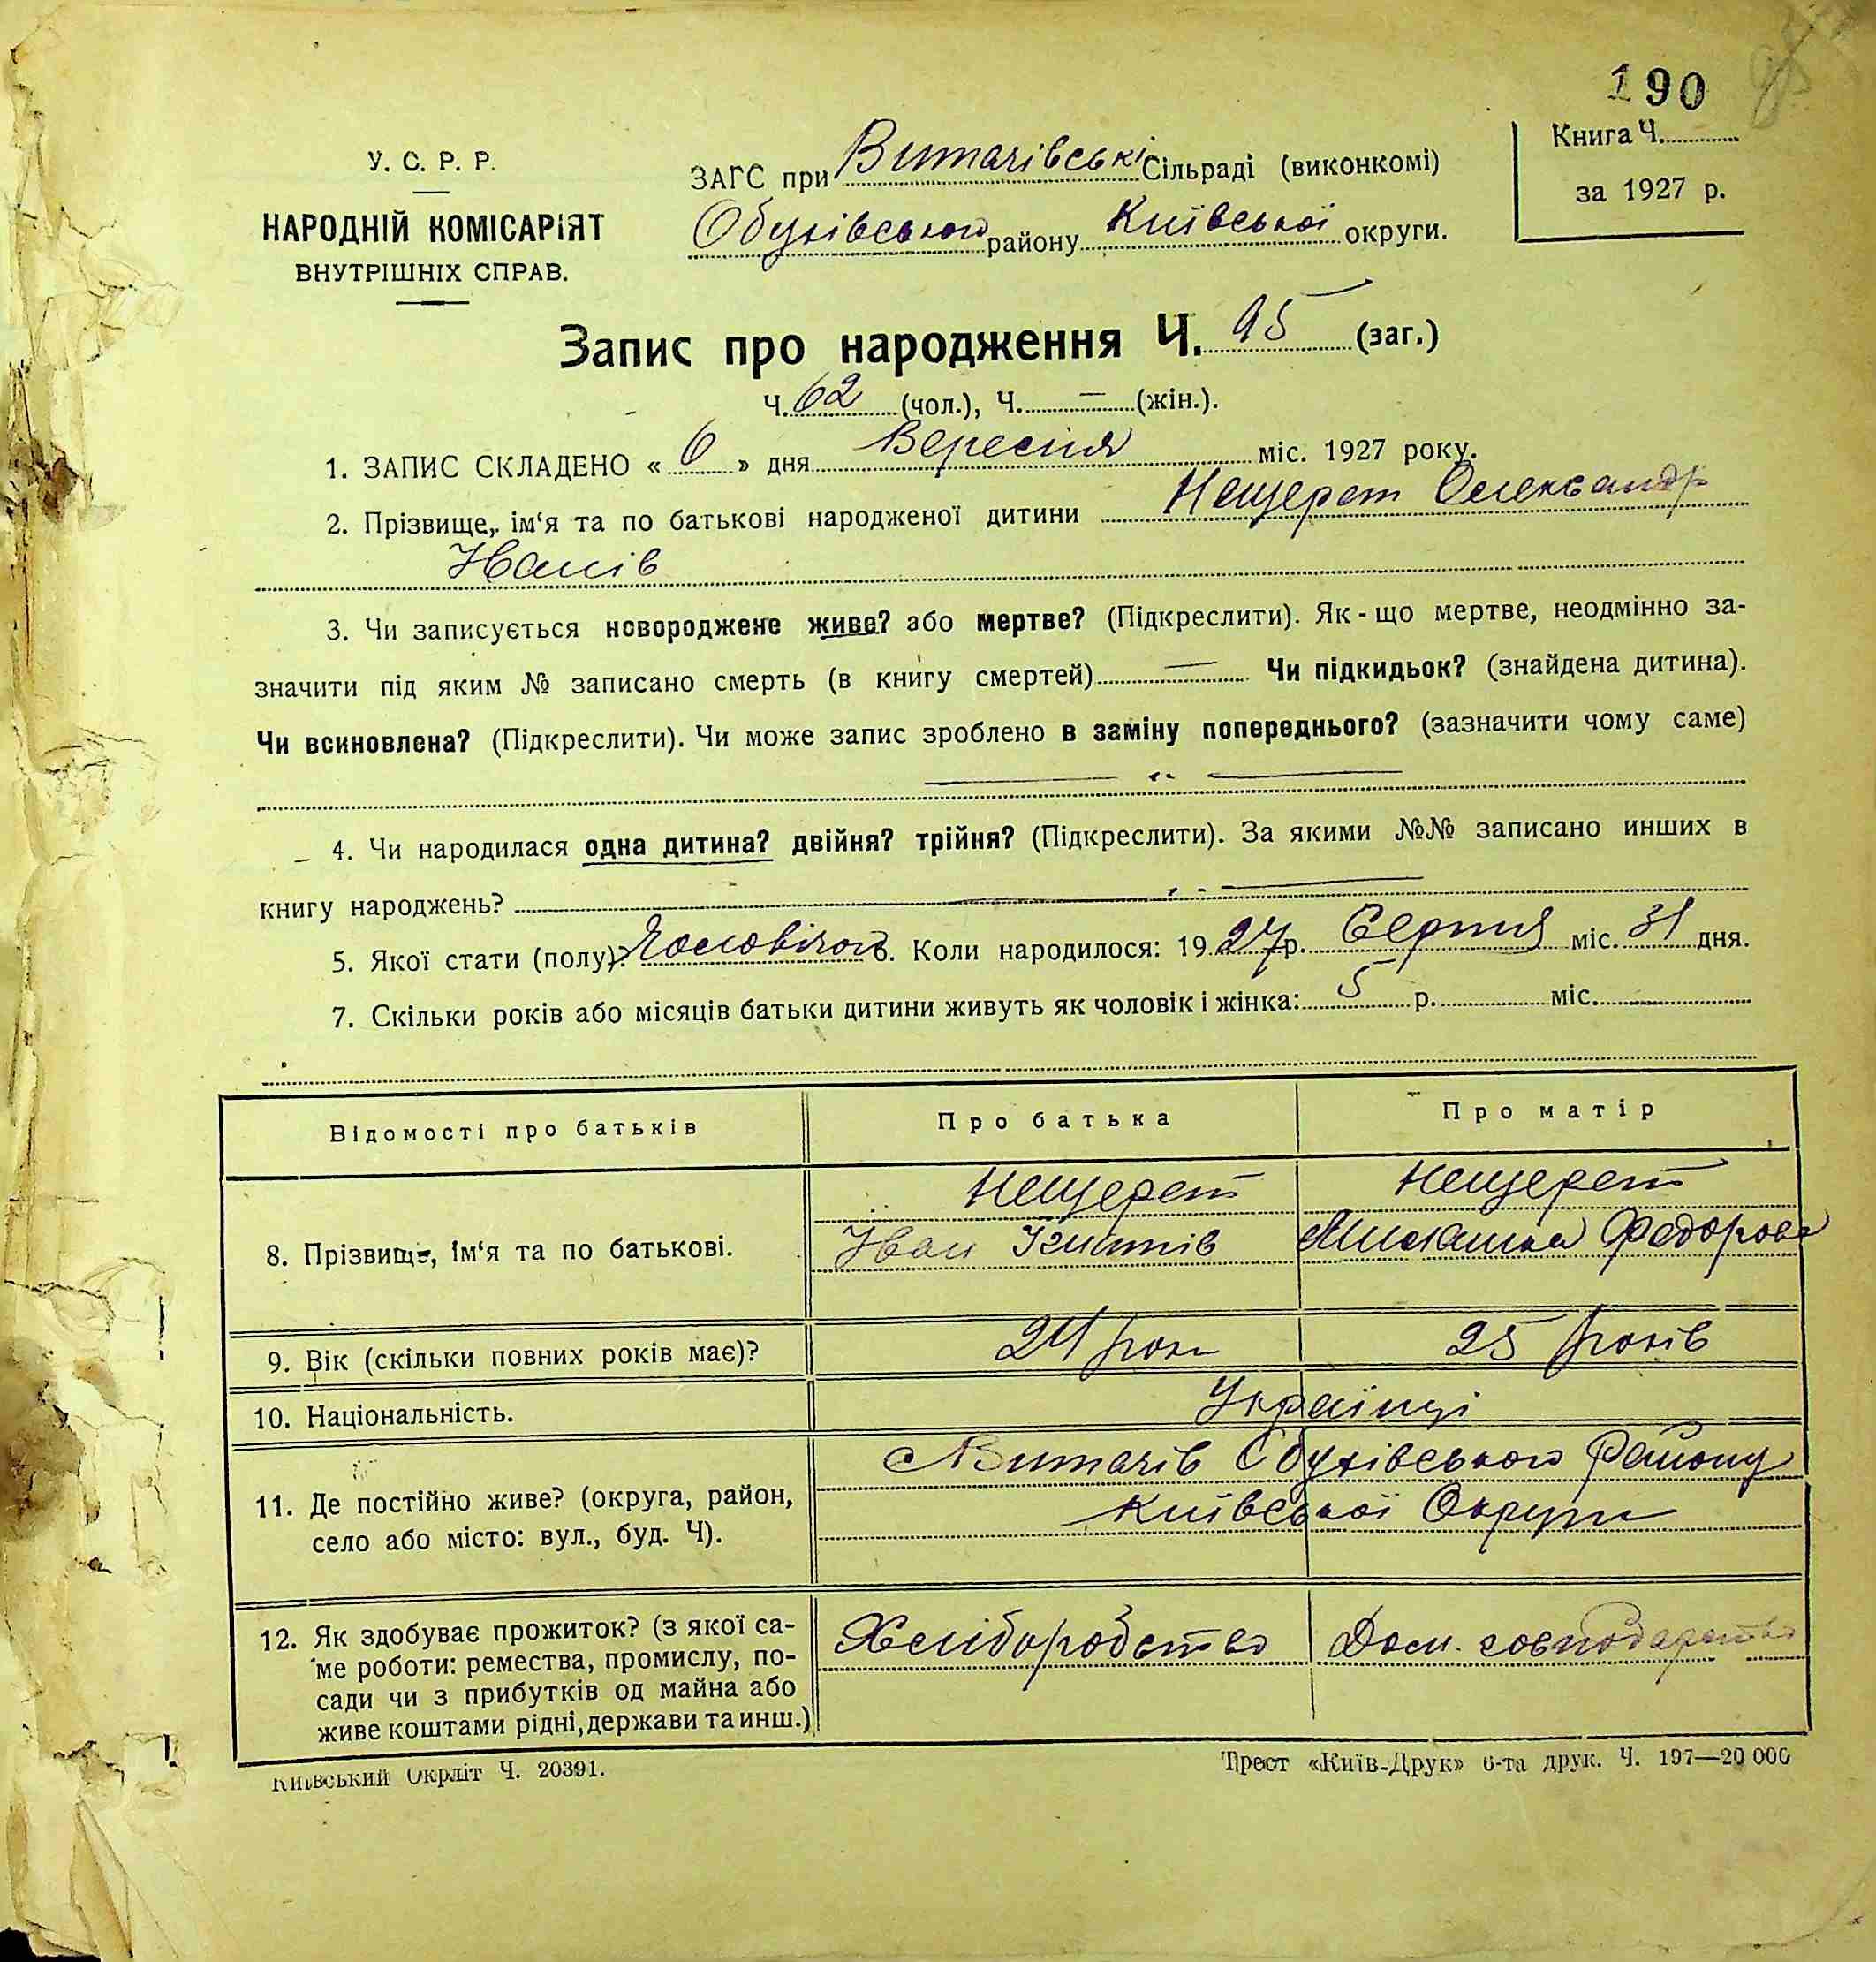 190
У. С. Р. Р.
НАРОДНІЙ КОМІСАРІЯТ
ВНУТРІШНІХ СПРАВ.
ЗАГС при Витачівські Сільраді (виконкомі)
Обухівського району Київської округи.
Книга Ч.
за 1927 р.
Запис про народження Ч. 95 (заг.)
Ч. 62 (чол.), Ч. — (жін.).
1. ЗАПИС СКЛАДЕНО « 6 » дня Вересня міс. 1927 року.
2. Прізвище, ім‘я та по батькові народженої дитини Нещерет Олександр
Іванів
3. Чи записується новороджене живе? або мертве? (Підкреслити). Як-що мертве, неодмінно за-
значити під яким № записано смерть (в книгу смертей) — Чи підкидьок? (знайдена дитина).
Чи всиновлена? (Підкреслити). Чи може запис зроблено в заміну попереднього? (зазначити чому саме)
— „ —
4. Чи народилася одна дитина? двійня? трійня? (Підкреслити). За якими №№ записано инших в
книгу народжень? — „ —
5. Якої стати (полу): Чоловічої 6. Коли народилося: 1927 р. Серпня міс. 31 дня.
7. Скільки років або місяців батьки дитини живуть як чоловік і жінка: 5 р. міс.
Відомості про батьків Про батька Про матір
8. Прізвище, ім‘я та по батькові.
Нещерет Нещерет
Іван Ігнатів Федорова
9. Вік (скільки повних років має)? 24 роки 25 років
10. Національність. Українці
11. Де постійно живе? (округа, район,
село або місто: вул., буд. Ч).
с Витачів Обухівського Району
Київської Округи
12. Як здобуває прожиток? (з якої са-
ме роботи: ремества, промислу, по-
сади чи з прибутків од майна або
живе коштами рідні, держави та инш.)
Хліборобство Дом. господарство
Київський Окрліт Ч. 20391.
Трест «Київ-Друк» 6-та друк. Ч. 197—20 000